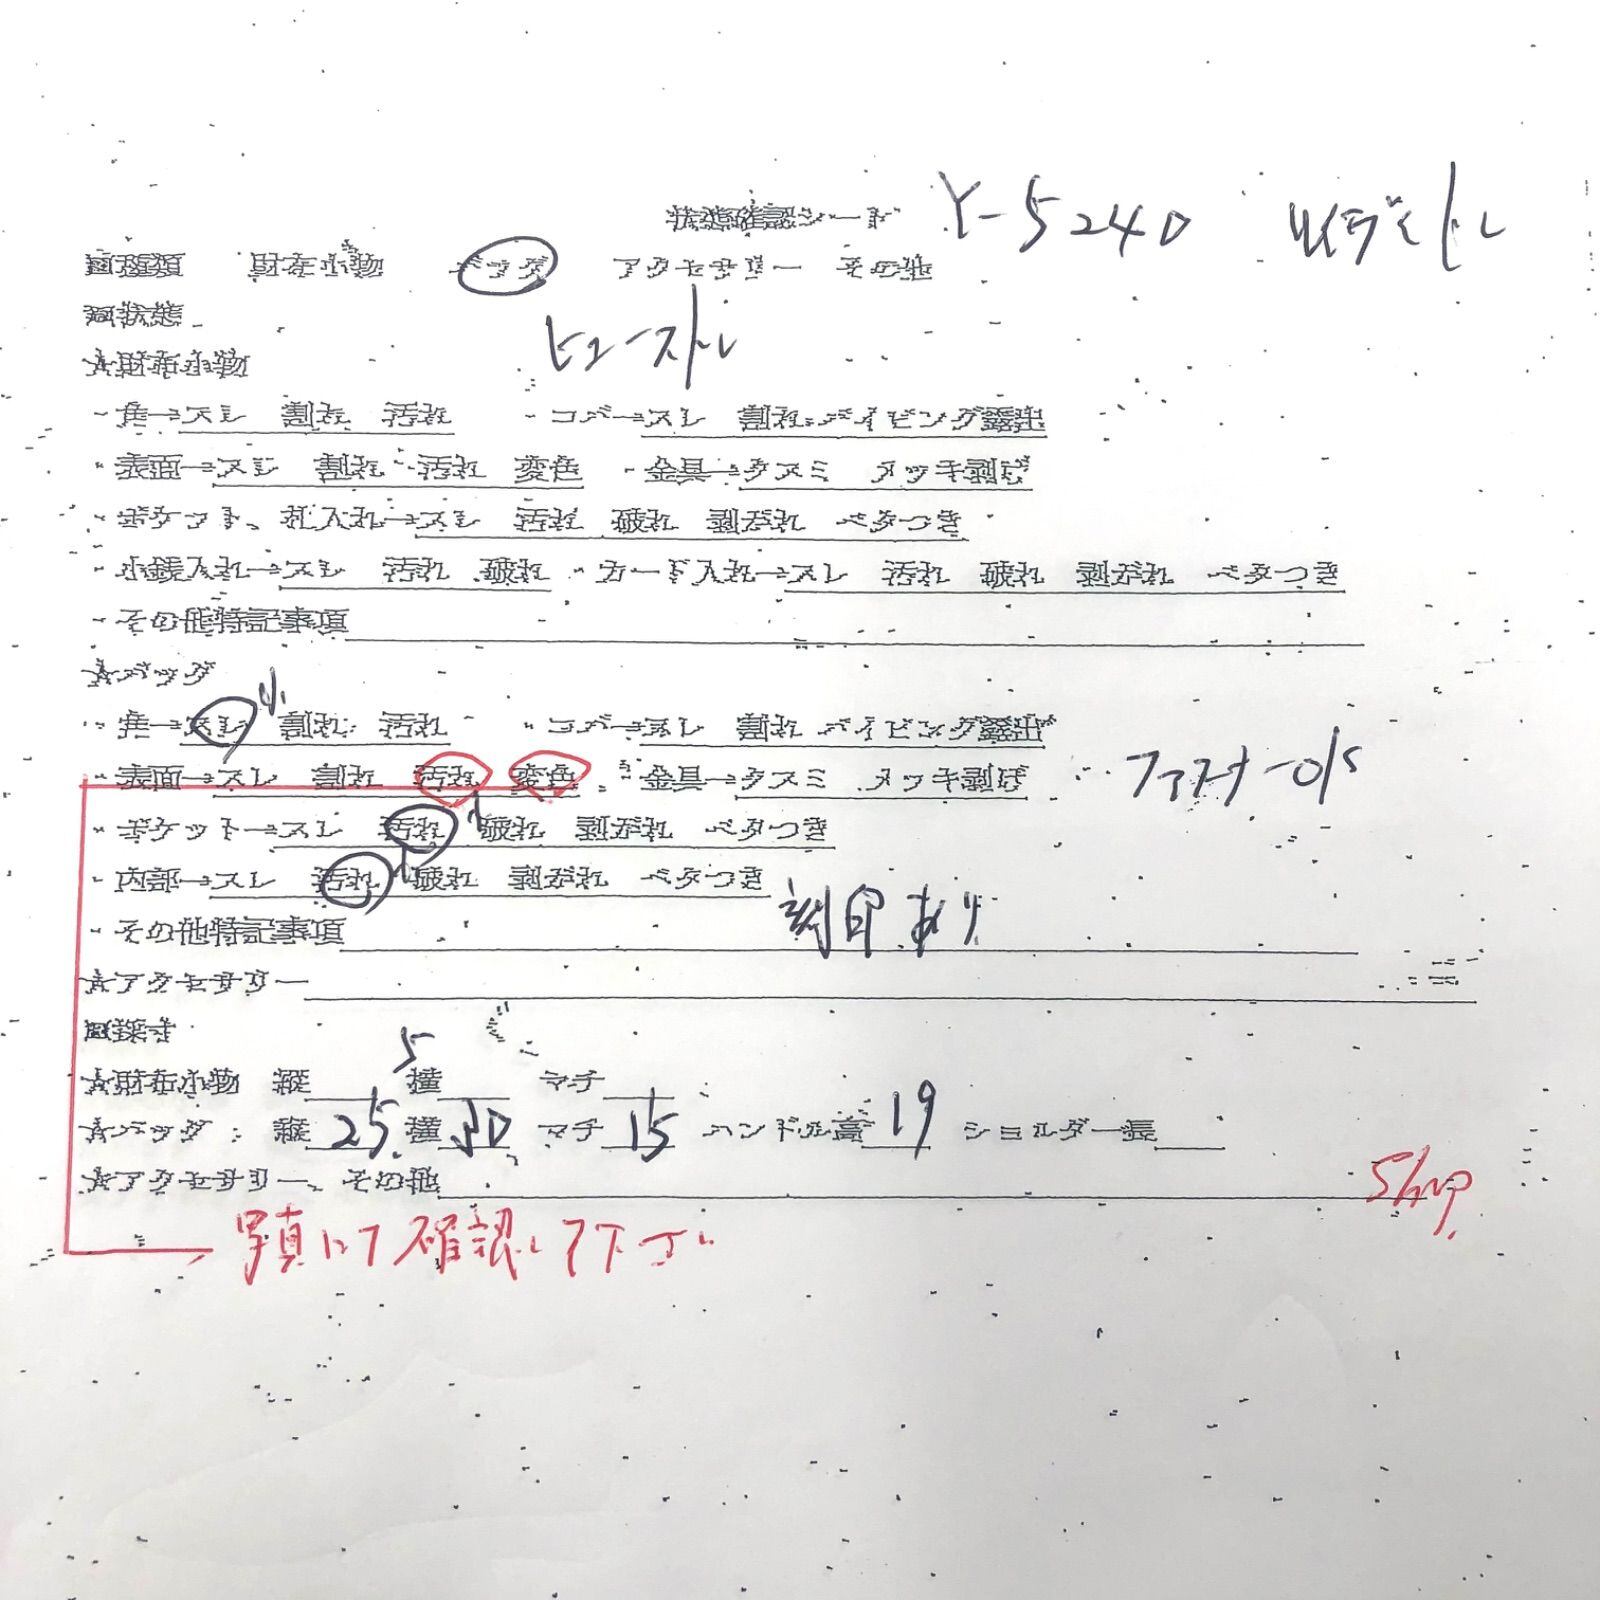 状態確認シート Y-5240
■種類 財布小物 バッグ アクセサリー その他
■状態
ヒューストン
☆財布小物
・角→スレ 割れ 汚れ ・コバ→スレ 割れ パイピング露出
・表面→スレ 割れ 汚れ 変色 ・金具→クスミ メッキ剥げ
・ポケット、札入れ→スレ 汚れ 破れ 剥がれ ベタつき
・小銭入れ→スレ 汚れ 破れ ・カード入れ→スレ 汚れ 破れ 剥がれ ベタつき
・その他特記事項
☆バッグ
・角→スレ 小 割れ 汚れ ・コバ→スレ 割れ パイピング露出
・表面→スレ 割れ 汚れ 変色 ・金具→クスミ メッキ剥げ ファスナーO/S
・ポケット→スレ 汚れ 破れ 剥がれ ベタつき
・内部→スレ 汚れ 破れ 剥がれ ベタつき
・その他特記事項 刻印あり
☆アクセサリー
■採寸
☆財布小物 縦 横 マチ
5
☆バッグ: 縦 25 横 30 マチ 15 ハンドル高 19 ショルダー長
☆アクセサリー、その他
写真にて確認して下さい